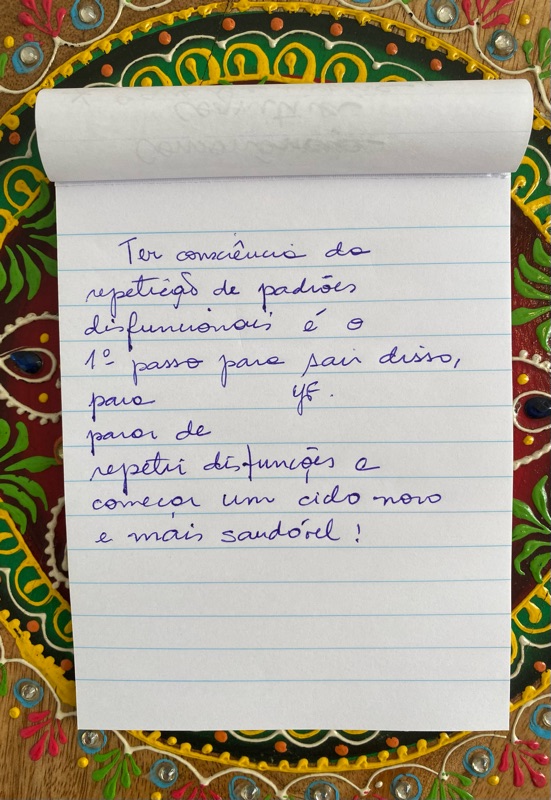 Ter consciência da
repetição de padrões
disfuncionais é o
1º passo para sair disso,
para
parar de
repetir disfunções e
começar um ciclo novo
e mais saudável!